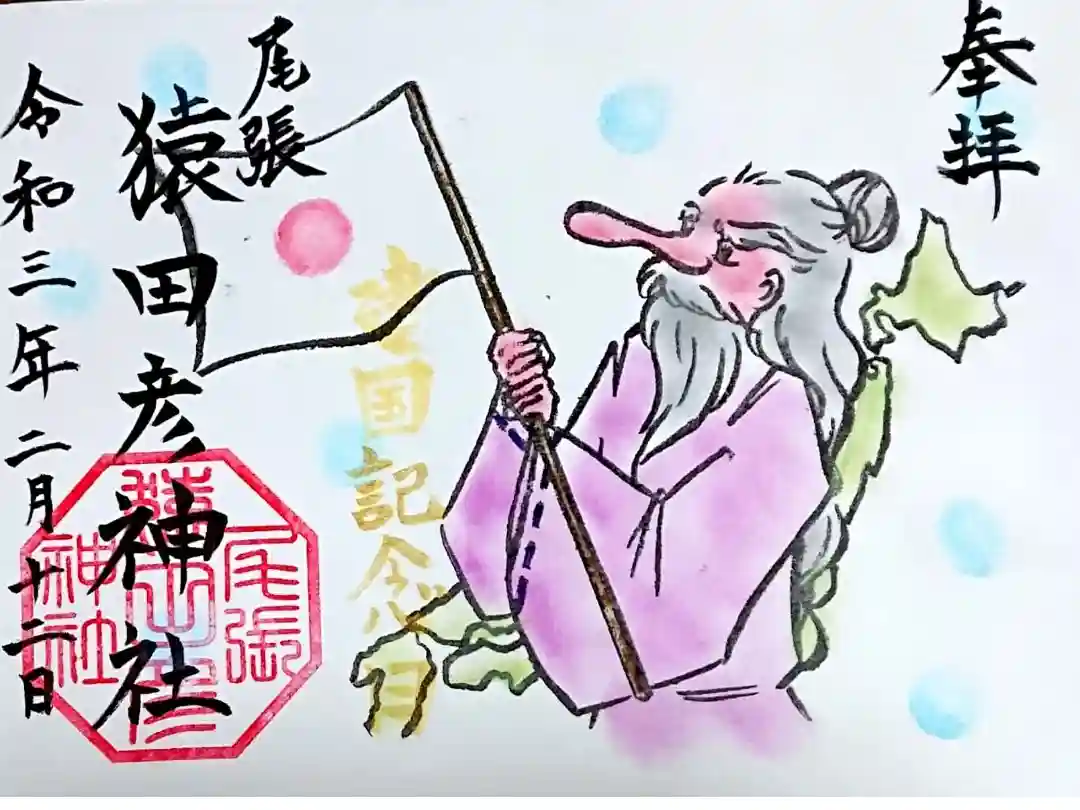 奉拝
建国記念日
尾張
猿田彦神社
令和三年二月十二日
尾張
猿田彦
神社